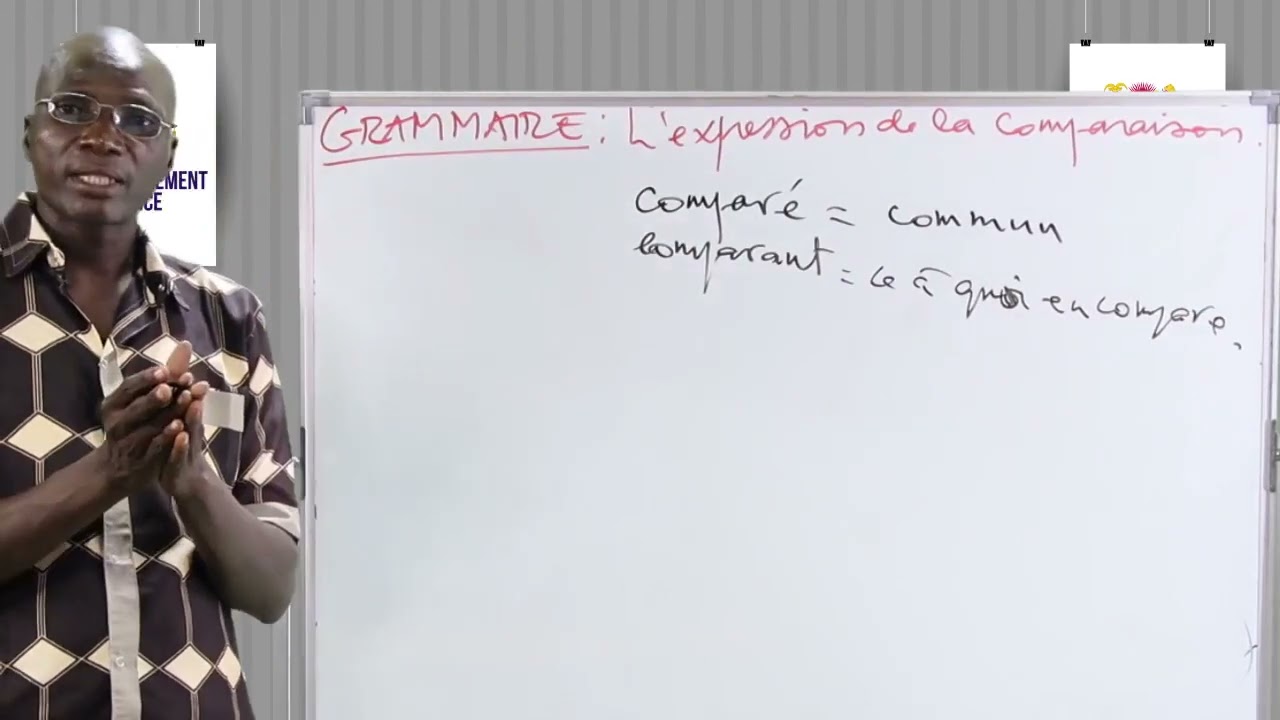 GRAMMAIRE : L'expression de la comparaison.
EMENT
CE
Comparé = commun
Comparant = ce à quoi on compare.